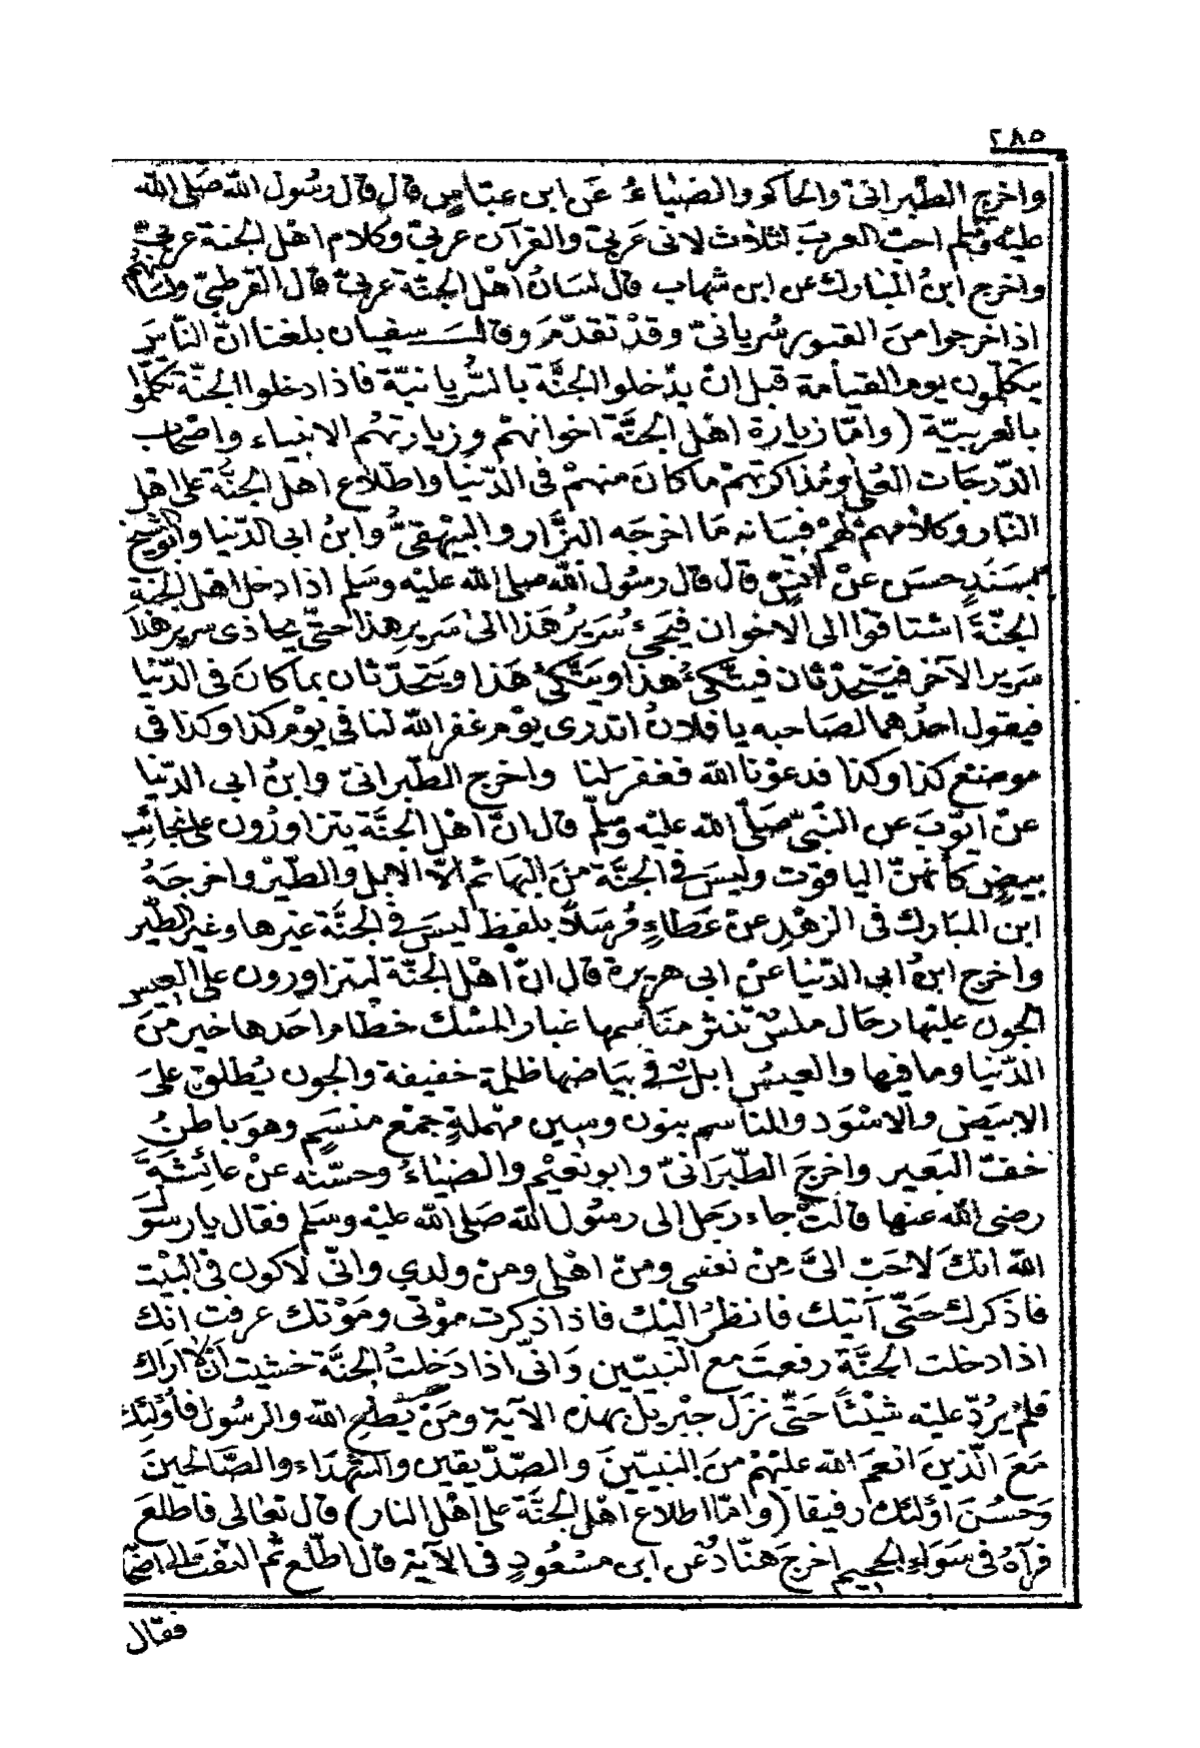 ٢٨٥
واخرج الطبراني والحاكم والضياء عن ابن عباس قال قال رسول الله صلى الله
عليه وسلم احب العرب لثلاث لاني عربي والقرآن عربي وكلام اهل الجنة عربي
واخرج ابن المبارك عن ابن شهاب قال لسان اهل الجنة عربي قال القرطبي ولسانهم
اذا خرجوا من القبور سرياني وقد تقدم وقال سفيان بلغنا ان الناس
يتكلمون يوم القيامة قبل ان يدخلوا الجنة بالسريانية فاذا دخلوا الجنة تكلموا
بالعربية (واما زيارة اهل الجنة اخوانهم وزيارتهم الانبياء واصحاب
الدرجات العلى ومذاكرتهم ما كان منهم في الدنيا واطلاع اهل الجنة على اهل
النار وكلامهم لهم فبيانه ما اخرجه البزار والبيهقي وابن ابى الدنيا وابو الشيخ
بسند حسن عن انس قال قال رسول الله صلى الله عليه وسلم اذا دخل اهل الجنة
الجنة اشتاقوا الى الاخوان فيجيء سرير هذا الى سرير هذا حتى يحاذى سرير هذا
سرير الآخر فيتحدثان فيتكئ هذا ويتكئ هذا ويتحدثان بما كان في الدنيا
فيقول احدهما لصاحبه يا فلان اتدرى يوم غفر الله لنا في يوم كذا وكذا في
موضع كذا وكذا فدعونا الله فغفر لنا واخرج الطبراني وابن ابى الدنيا
عن ايوب عن النبي صلى الله عليه وسلم قال ان اهل الجنة يتزاورون على نجائب
بيض كأنهن الياقوت وليس في الجنة من البهائم الا الابل والطير واخرجه
ابن المبارك في الزهد عن عطاء مرسلا بلفظ ليس في الجنة غيرها وغير الطير
واخرج ابن ابي الدنيا عن ابى هريرة قال ان اهل الجنة ليتزاورون على العيس
الجون عليها رحال ملس تنثر مناسمها غبار المسك خطام احدها خير من
الدنيا وما فيها والعيس ابل في بياضها ظلمة خفيفة والجون يطلق على
الابيض والاسود والمناسم بنون وسين مهملة جمع منسم وهو باطن
خف البعير واخرج الطبراني وابو نعيم والضياء وحسنه عن عائشة
رضى الله عنها قالت جاء رجل الى رسول الله صلى الله عليه وسلم فقال يا رسول
الله انك لاحب الي من نفسى ومن اهلى ومن ولدي واني لاكون في البيت
فاذكرك حتى آتيك فانظر اليك فاذا ذكرت موتى وموتك عرفت انك
اذا دخلت الجنة رفعت مع النبيين وانى اذا دخلت الجنة خشيت ان لا اراك
فلم يرد عليه شيئا حتى نزل جبريل بهذه الآية ومن يطع الله والرسول فأولئك
مع الذين انعم الله عليهم من النبيين والصديقين والشهداء والصالحين
وحسن اولئك رفيقا (واما اطلاع اهل الجنة على اهل النار) قال تعالى فاطلع
فرآه في سواء الجحيم اخرج هناد عن ابن مسعود في الآية قال اطلع ثم التفت الى
فقال